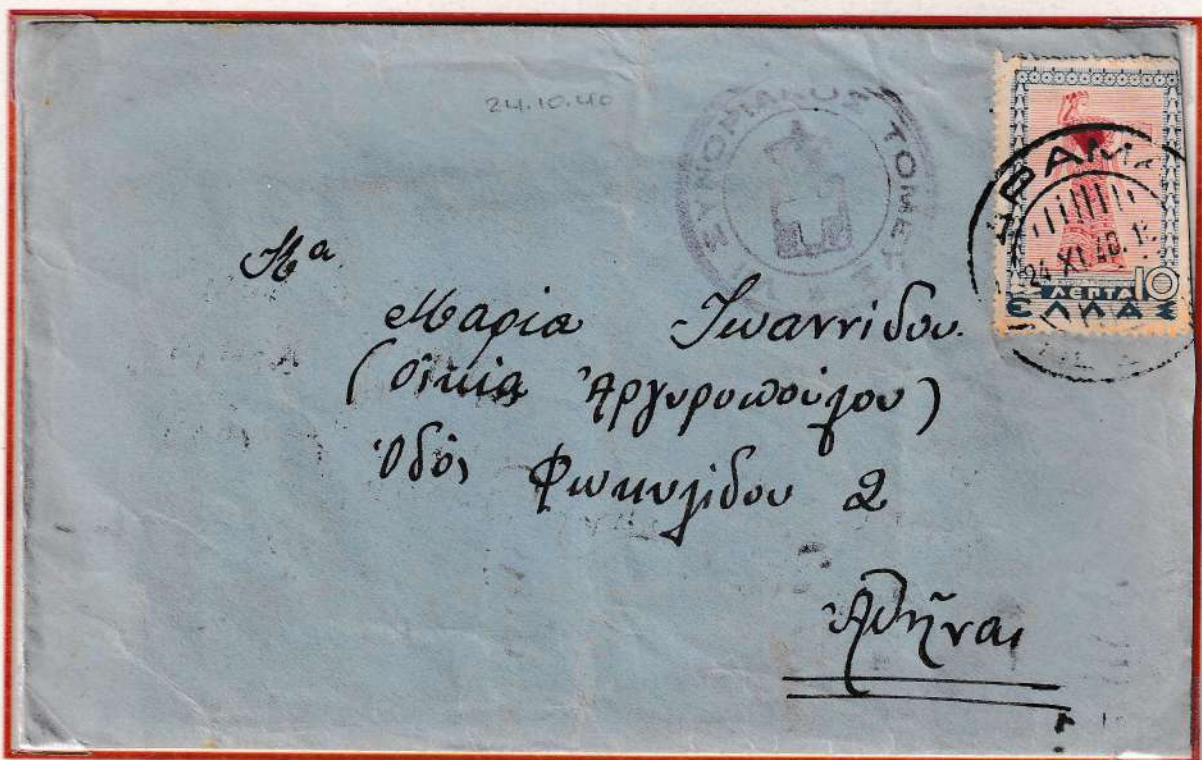 24.10.40
ΣΥΝΟΡΙΑΚΟΣ ΤΟΜΕΥΣ
ΔΡΑΜΑ
24 XI 40.
ΛΕΠΤΑ 10
ΕΛΛΑΣ
Μα
Μαρία Ἰωαννίδου.
(Οἰκία Ἀργυροπούλου)
Ὁδός Φωκυλίδου 2
Ἀθῆναι